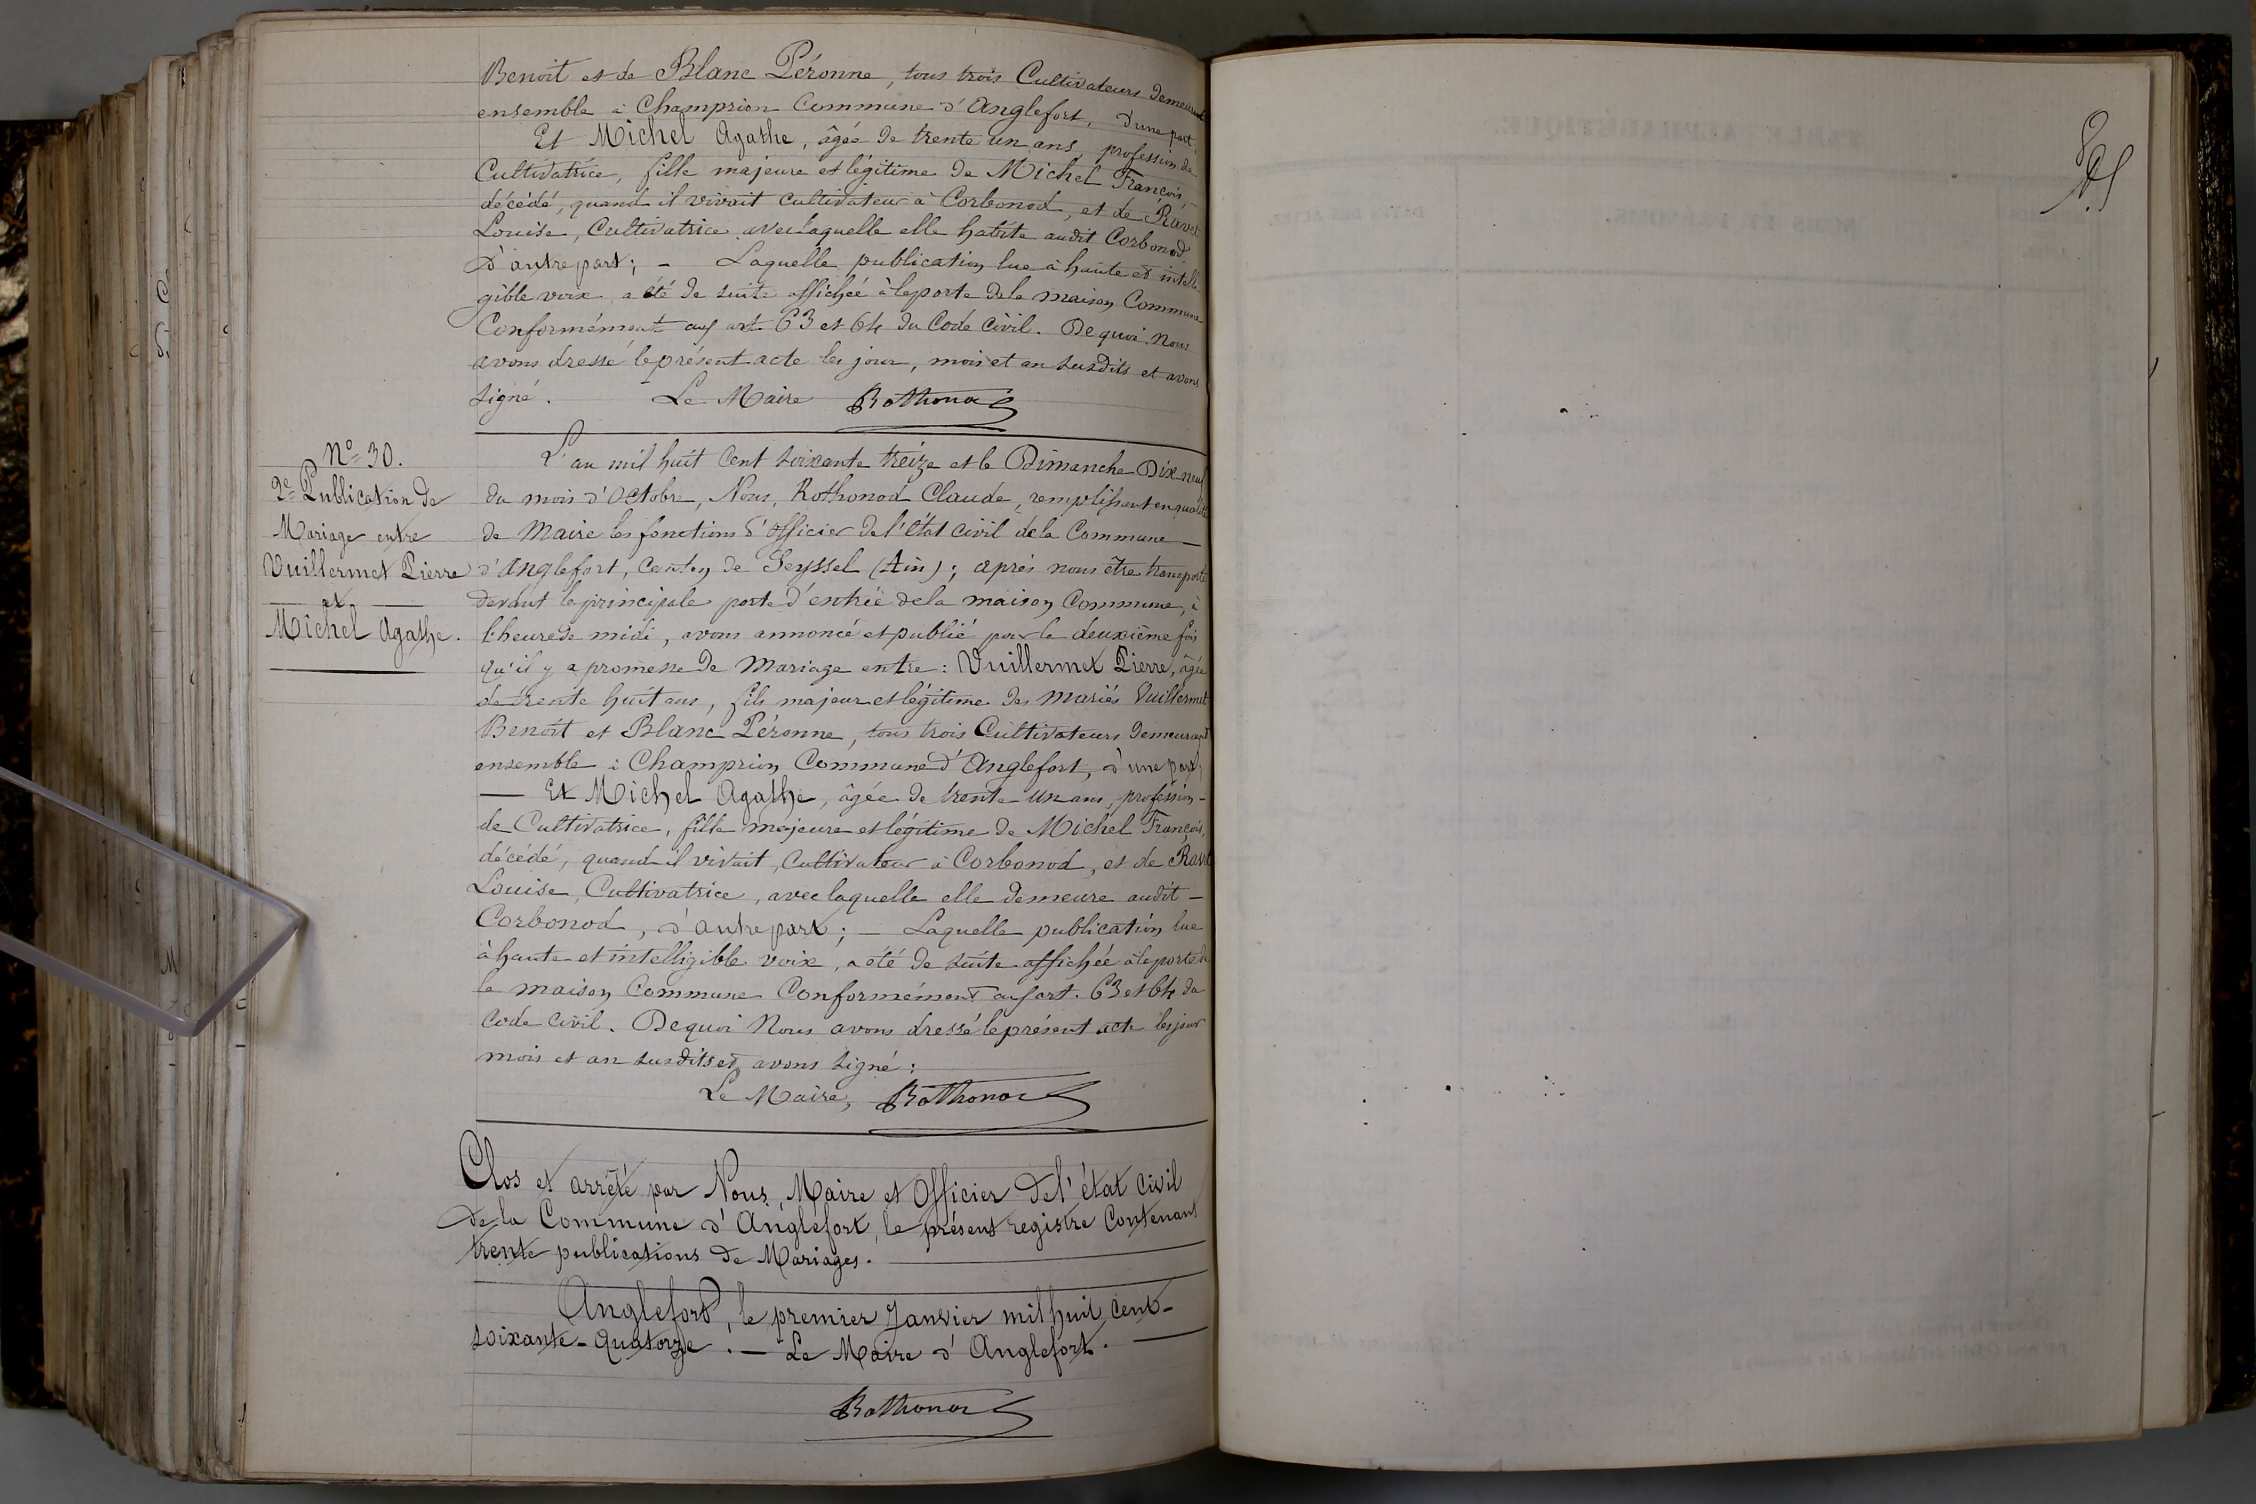 Benoît et de Blanc Péronne, tous trois Cultivateurs demeurant
ensemble à Champrion Commune d'Anglefort, d'une part.
Et Michel Agathe, âgée de trente un ans, profession de
Cultivatrice, fille majeure et légitime de Michel François,
décédé, quand il vivait cultivateur à Corbonod, et de Ravet
Louise, Cultivatrice avec laquelle elle habite audit Corbonod
d'autre part; — Laquelle publication lue à haute et intelli-
gible voix a été de suite affichée à la porte de la maison Commune
Conformément aux art. 63 et 64 du Code Civil. De quoi Nous
avons dressé le présent acte les jour, mois et an susdits et avons
signé. Le Maire Rothonod
N° 30.
2e Publication de
Mariage entre
Vuillermet Pierre
et
Michel Agathe.
L'an mil huit Cent soixante treize et le Dimanche Dix neuf
du mois d'Octobre, Nous, Rothonod Claude, remplissant en qualité
de Maire les fonctions d'officier de l'état civil de la Commune —
d'Anglefort, Canton de Seyssel (Ain); après nous être transporté
devant la principale porte d'entrée de la maison Commune, à
l'heure de midi, avons annoncé et publié pour la deuxième fois
qu'il y a promesse de Mariage entre: Vuillermet Pierre, âgé
de trente huit ans, fils majeur et légitime des mariés Vuillermet
Benoît et Blanc Péronne, tous trois Cultivateurs demeurant
ensemble à Champrion Commune d'Anglefort, d'une part,
— Et Michel Agathe, âgée de trente un ans, profession —
de Cultivatrice, fille majeure et légitime de Michel François,
décédé, quand il vivait, Cultivateur à Corbonod, et de Ravet
Louise, Cultivatrice, avec laquelle elle demeure audit —
Corbonod, d'autre part; — Laquelle publication lue
à haute et intelligible voix, a été de suite affichée à la porte de
la maison Commune Conformément aux art. 63 et 64 du
Code Civil. De quoi Nous avons dressé le présent acte les jour
mois et an susdits et avons signé:
Le Maire, Rothonod
Clos et arrêté par Nous, Maire et Officier de l'état civil
de la Commune d'Anglefort, le présent registre Contenant
trente publications de Mariages.
Anglefort, le premier Janvier mil huit cent-
soixante-Quatorze. — Le Maire d'Anglefort. —
Rothonod